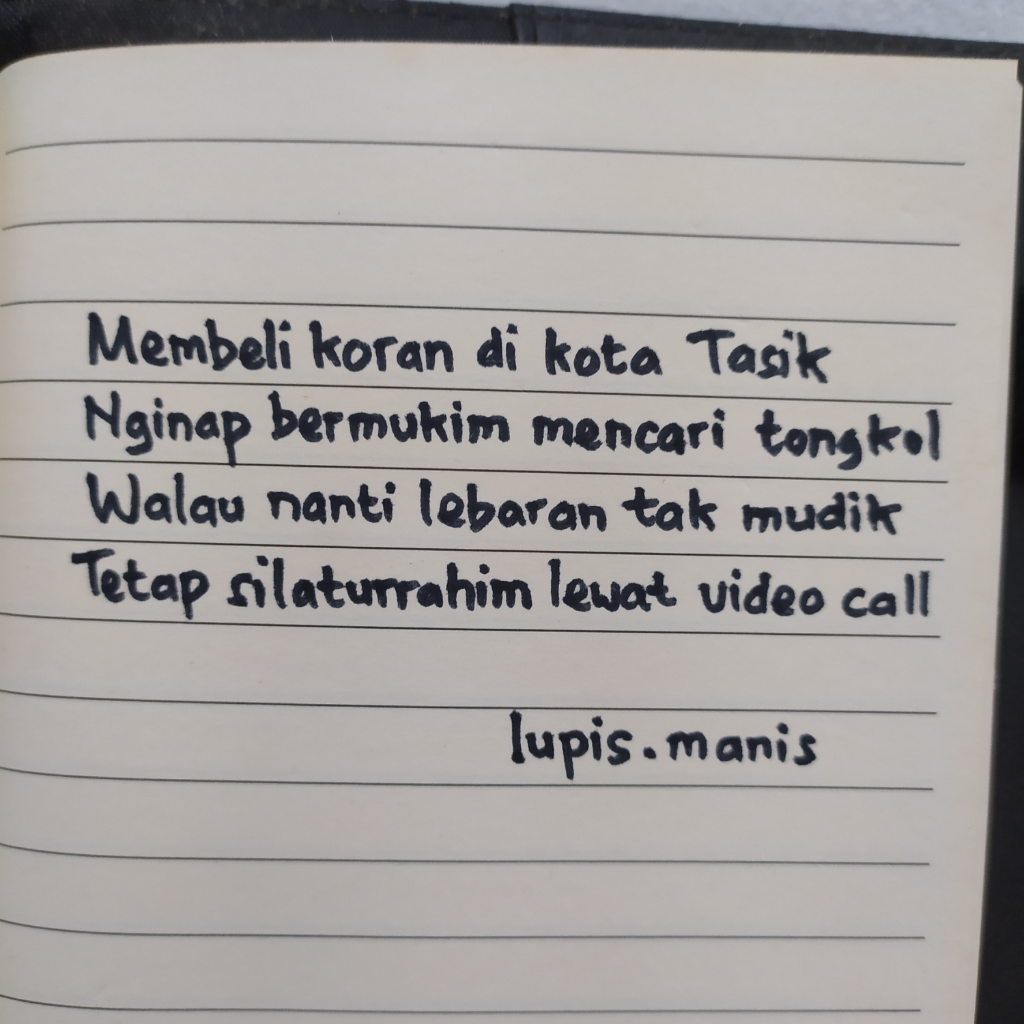 Membeli koran di kota Tasik
Nginap bermukim mencari tongkol
Walau nanti lebaran tak mudik
Tetap silaturrahim lewat video call
lupis.manis